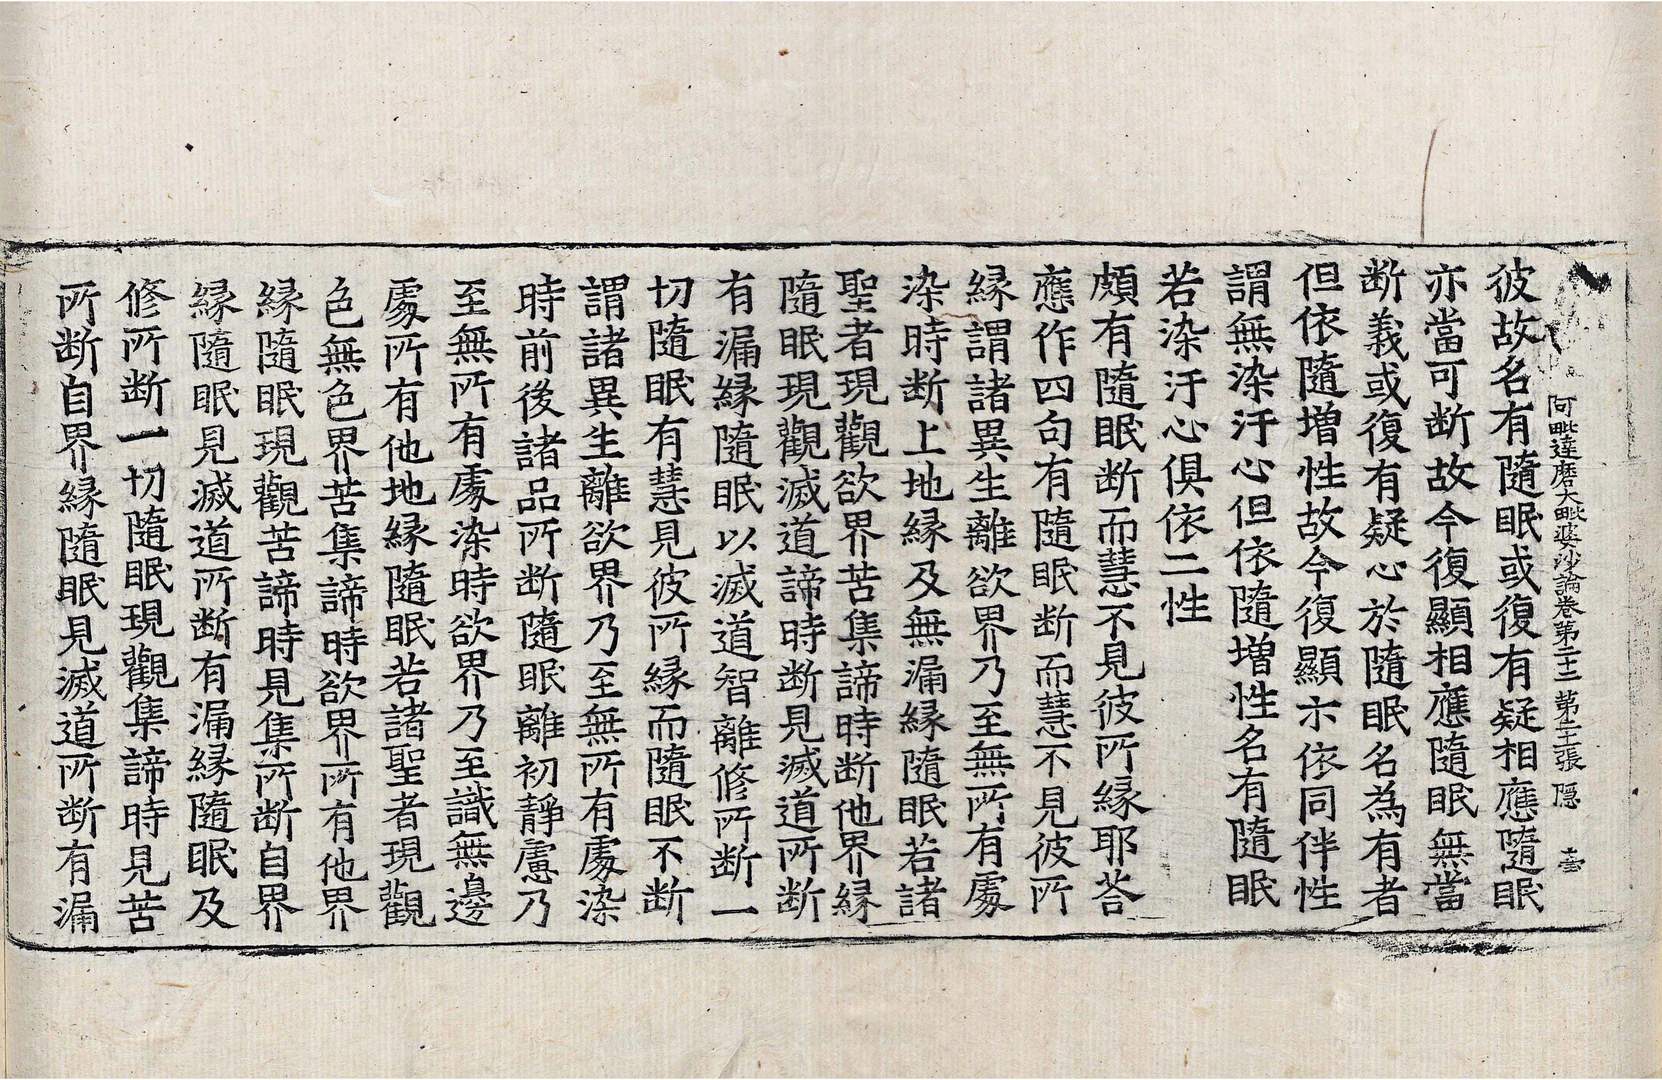 阿毗達磨大毗婆沙論卷第二十二 第二十張 隱
彼故名有隨眠或復有疑相應隨眠
亦當可断故今復顯相應隨眠無當
断義或復有疑心於隨眠名為有者
但依隨增性故今復顯示依同伴性
謂無染汙心但依隨增性名有隨眠
若染汙心俱依二性
頗有隨眠断而慧不見彼所緣耶荅
應作四句有隨眠断而慧不見彼所
緣謂諸異生離欲界乃至無所有處
染時断上地緣及無漏緣隨眠若諸
聖者現觀欲界苦集諦時断他界緣
隨眠現觀滅道諦時断見滅道所断
有漏緣隨眠以滅道智離修所断一
切隨眠有慧見彼所緣而隨眠不断
謂諸異生離欲界乃至無所有處染
時前後諸品所断隨眠離初靜慮乃
至無所有處染時欲界乃至識無邊
處所有他地緣隨眠若諸聖者現觀
色無色界苦集諦時欲界所有他界
緣隨眠現觀苦諦時見集所断自界
緣隨眠見滅道所断有漏緣隨眠及
修所断一切隨眠現觀集諦時見苦
所断自界緣隨眠見滅道所断有漏